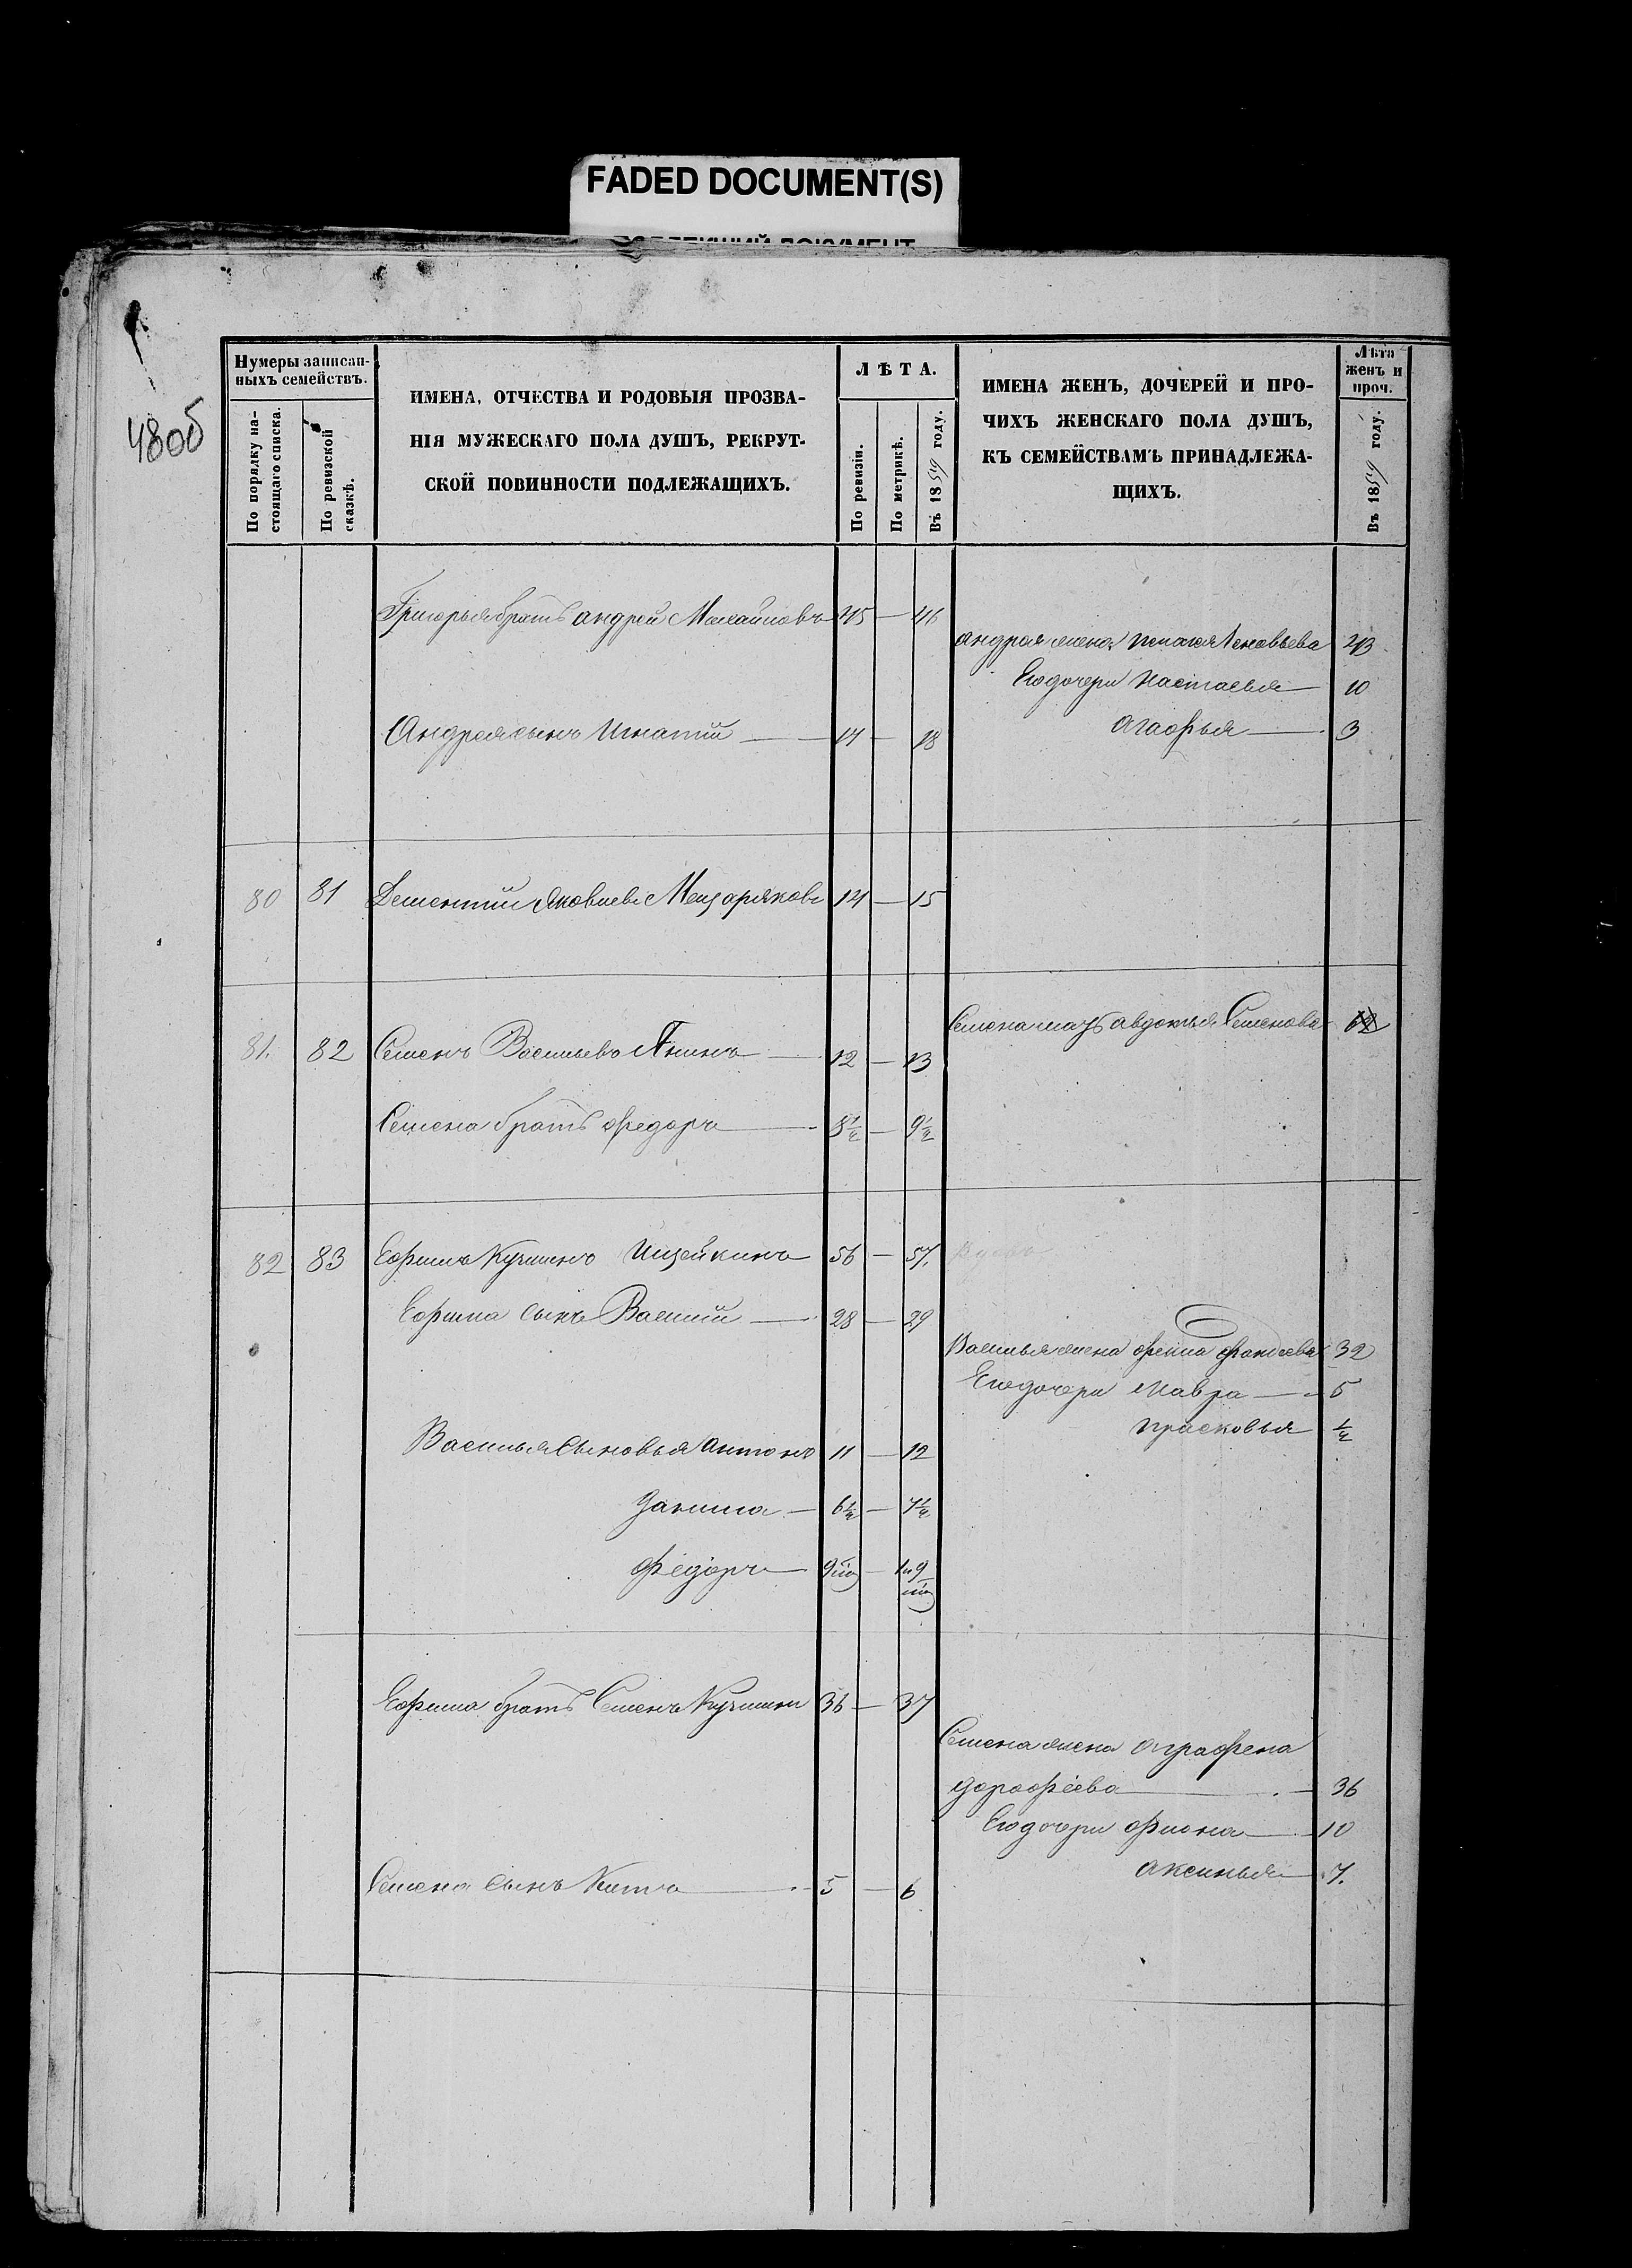 FADED DOCUMENT(S)
480б
Нумеры записан-
ныхъ семействъ.
По порядку на-
стоящаго списка.
По ревизской
сказкѣ.
ИМЕНА, ОТЧЕСТВА И РОДОВЫЯ ПРОЗВА-
НІЯ МУЖЕСКАГО ПОЛА ДУШЪ, РЕКРУТ-
СКОЙ ПОВИННОСТИ ПОДЛЕЖАЩИХЪ.
ЛѢТА.
По ревизіи.
По метрикѣ.
Въ 1859 году.
ИМЕНА ЖЕНЪ, ДОЧЕРЕЙ И ПРО-
ЧИХЪ ЖЕНСКАГО ПОЛА ДУШЪ,
КЪ СЕМЕЙСТВАМЪ ПРИНАДЛЕЖА-
ЩИХЪ.
Лѣта
женъ и
проч.
Въ 1859 году.
Григорья братъ андрей Михайловъ 45 — 46
андрея жена 43
Его дочери Настасья — 10
Андрея сынъ Игнатій — 17 — 18
Агафья — 3
80 81 Дементій Яковлевъ 14 — 15
Семена мать авдотья Семенова 62
81. 82 Семенъ Васильевъ Янинъ — 12 — 13
Семена братъ федоръ — 8½ — 9½
82 83 Ефимъ Кузминъ 56 — 57. Вдовъ
Ефима сынъ Василій — 28 — 29
Василья жена 32
Его дочери Мавра — 5
прасковья ½
Василья сыновья антонъ 11 — 12
Данила — 6½ — 7½
Федоръ — 9 м — 1 и 9 м
Ефима братъ Семенъ Кузминъ 36 — 37
Семена жена аграфена
дорофѣева — 36
Его дочери фиона — 10
аксинья — 7.
Семена сынъ Титъ — 5 — 6